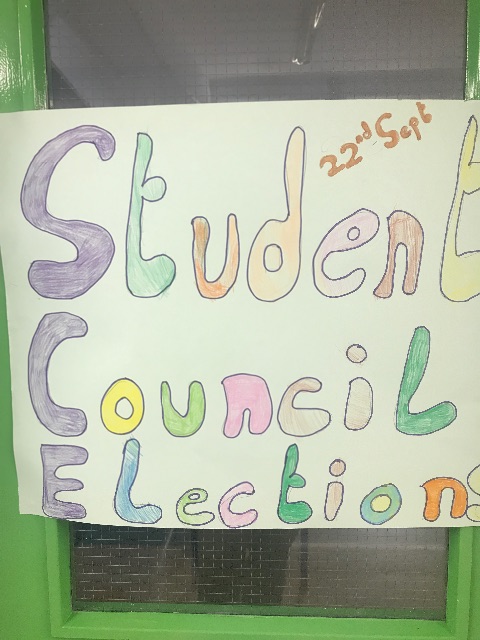 22nd Sept
Student
Council
Elections